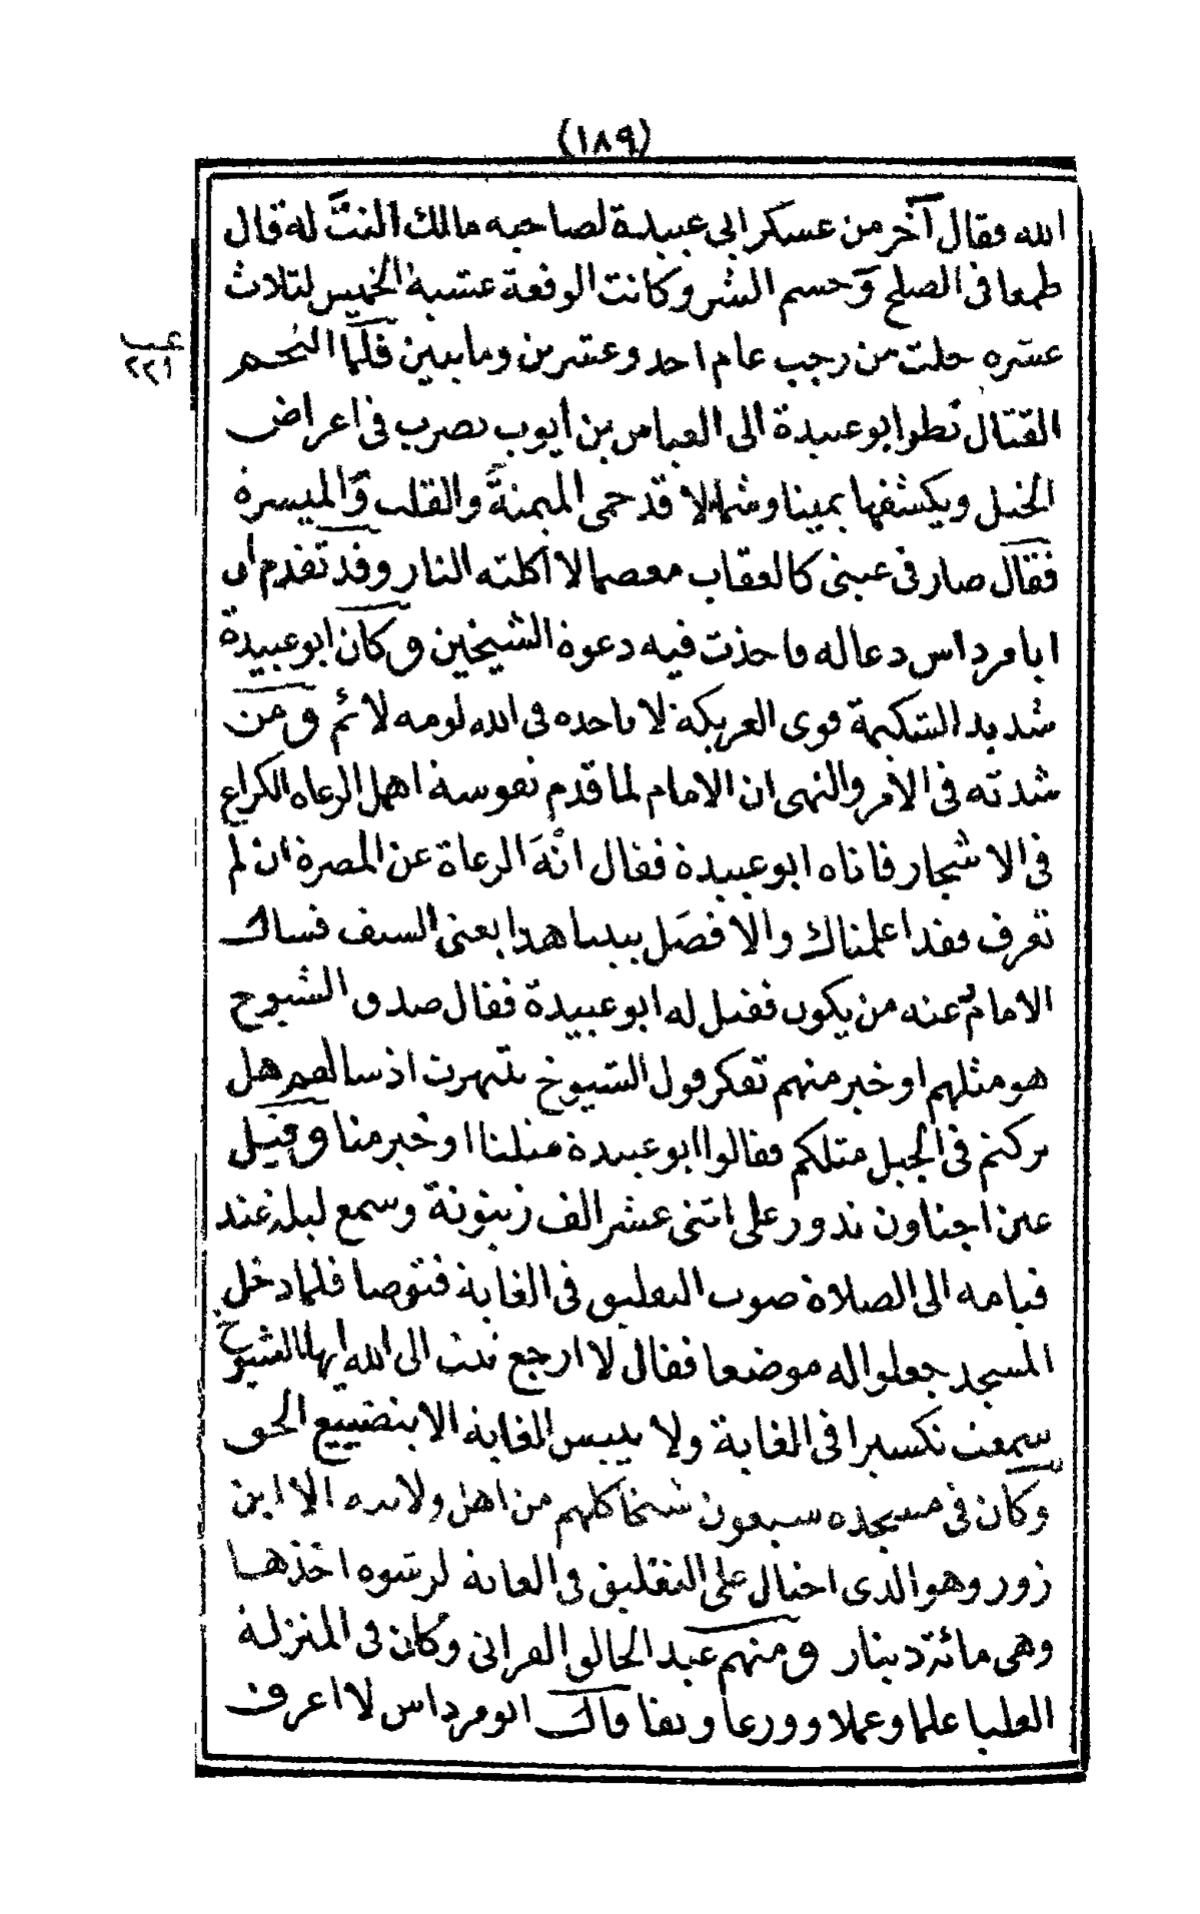 (١٨٩)
الله فقال آخر من عسكر ابي عبيدة لصاحبه مالك النت له قال
طمعا في الصلح وحسم الشر وكانت الوقعة عشية الخميس لثلاث
عب
٢٢١
عشره خلت من رجب عام احد وعشرين ومايتين فلما التحم
القتال نظر ابو عبيدة الى العباس بن أيوب يضرب في اعراض
الخيل ويكشفها يمينا وشمالا قد حمى الميمنة والقلب والميسرة
فقال صار في عيني كالعقاب معصما لا اكلته النار وقد تقدم ان
ابا مرداس دعا له فاخذت فيه دعوة الشيخين وكان ابو عبيدة
شديد الشكيمة قوى العريكة لا ياخذه في الله لومه لائم ومن
شدته في الأمر والنهى ان الامام لما قدم نفوسة اهمل الرعاه الكراع
في الاشجار فاتاه ابو عبيدة فقال انه الرعاة عن المضرة ان لم
تعرف فقد اعلمناك والا فصل بيننا هذا يعنى السيف فسال
الامام عنه من يكون فقيل له ابو عبيدة فقال صدق الشيوخ
هو مثلهم او خير منهم تفكر قول الشيوخ بتيهرت اذ سالهم هل
تركتم في الجبل مثلكم فقالوا ابو عبيدة مثلنا او خير منا وقيل
عين اجناون تدور على اثنى عشر الف زيتونة وسمع ليلة عند
قيامه الى الصلاة صوت التعليق في الغابة فتوضا فلما دخل
المسجد جعلوا له موضعا فقال لا ارجع تبت الى الله ايها الشيوخ
سمعت تكسيرا في الغابة ولا ييبس الغابة الا بتضييع الحق
وكان في مسجده سبعون شيخا كلهم من اهل ولايته الا ابن
زور وهو الذى احتال على التعليق في الغابة لرشوه اخذها
وهي مائة دينار ومنهم عبد الخالق الفزانى وكان في المنزلة
العليا علما وعملا وورعا وتقا قال ابو مرداس لا اعرف